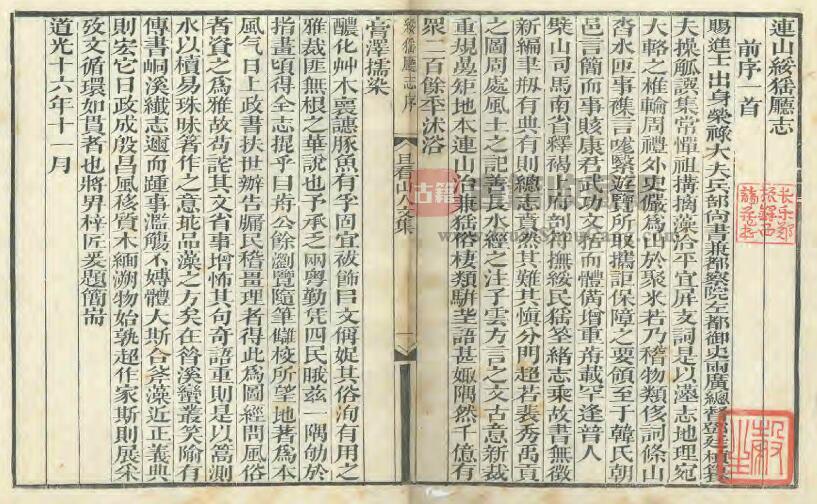 連山綏猺廳志
前序一首
賜進士出身榮祿大夫兵部尚書兼都察院左都御史兩廣總督鄧廷楨譔
夫操觚譔集常憚祖構摛藻洽平宜屏支詞是以志地理宛
大輅之椎輪周禮外史儼為山於聚米若乃稽物類侈詞條山
沓水匝事襍言嚨繄好覽所取攜詎保障之要領至于韓氏朝
邑言簡而事賅康君武功文括而體僃增重荐載罕逢普人
檗山司馬南省釋褐府剖符撫綏民猺筌緒志乘故書無徵
新編書有典有則總志賁然其難其慎分門超若裴秀禹貢
之圖周處風土之記善長水經之注子雲方言之文古意新裁
重規疊矩地本連山治兼猺俗棲類騈語甚娵隅然千億有
眾二百餘年沐浴
綏猺廳志序
且看山人文集
一
膏澤擩染
醲化艸木裛譓豚魚有孚固宜袚飾巨文稱娖其俗洵有用之
雅裁匪無根之華說也予承乏兩粵勤凭四民睋玆一隅劬於
指畫頃得全志提乎曰公餘瀏覽隨筆讎校所望地著為本
風气日上政書扶世辦告牖民稽畺理者得此為圖經問風俗
者資之為雅故苟詫其文省事增怖其句奇語重則是以蠡測
水以櫝易珠昧著作之意玼品藻之方矣在昝溪蠻叢笑喻有
傳書峒溪纖志邇而踵事濫觴不嫥體大斯合藻近正義典
則宏它日政成殷昌風移質木緬溯物始孰超作家斯則展采
攷文循環如貫者也將畀梓匠爰題簡耑
道光十六年十一月
長樂鄭
振鐸西
諦藏書
古籍